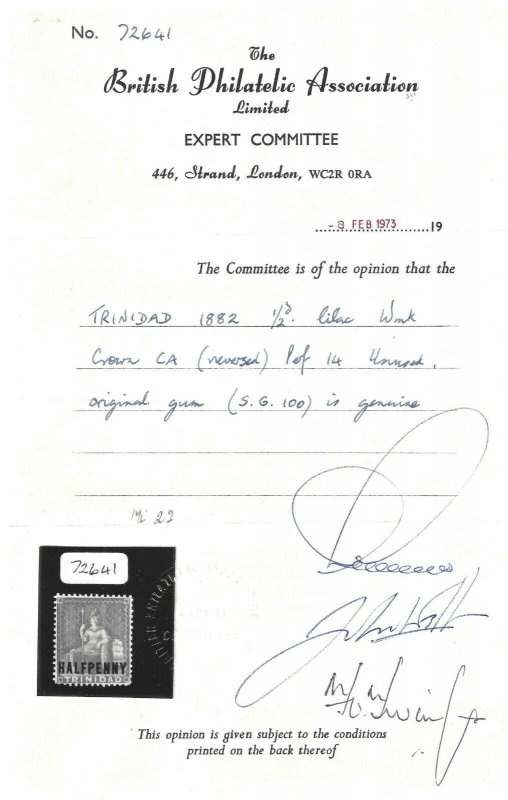 No. 72641
The
British Philatelic Association
Limited
EXPERT COMMITTEE
446, Strand, London, WC2R 0RA
-8 FEB 1973 19
The Committee is of the opinion that the
TRINIDAD 1882 ½d. lilac Wmk
Crown CA (reversed) Perf 14 Unused,
original gum (S.G. 100) is genuine
22
72641
HALFPENNY
TRINIDAD
This opinion is given subject to the conditions
printed on the back thereof